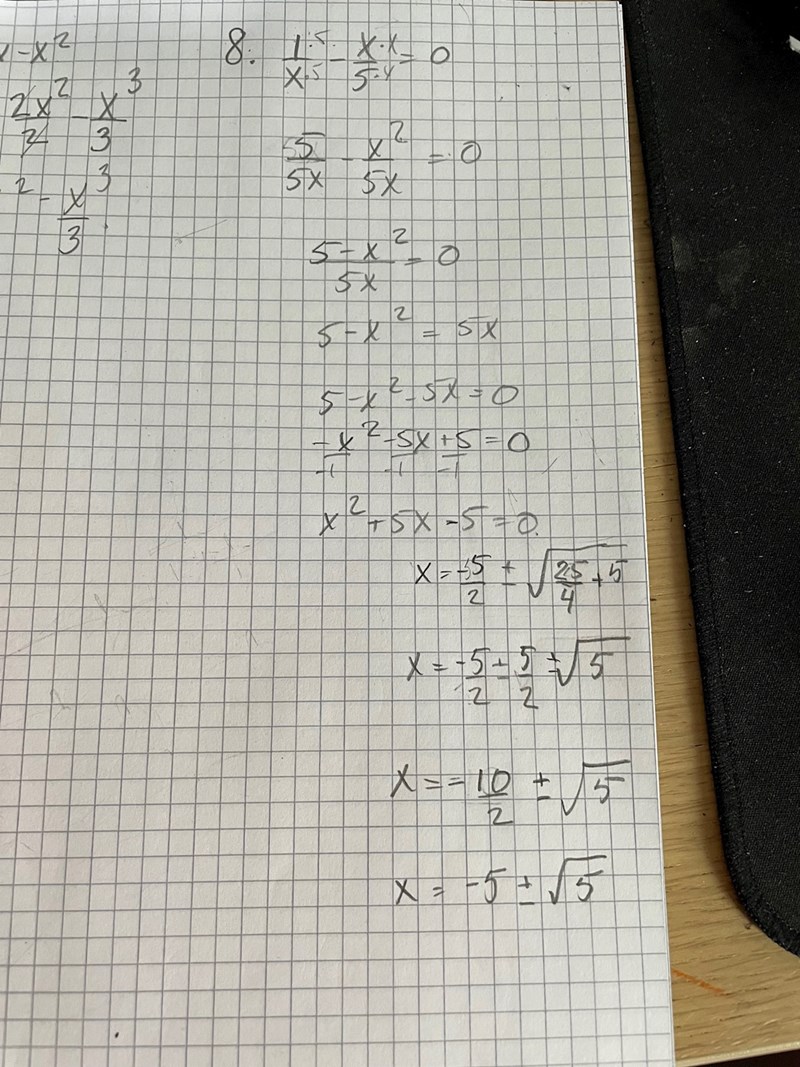 x-x²
2x²/2 - x³/3
² - x³/3
8. 1·5/x·5 - x·x/5·x = 0
5/5x - x²/5x = 0
5-x²/5x = 0
5-x² = 5x
5-x²-5x=0
-x²/-1 -5x/-1 +5/-1 =0
x²+5x-5=0.
x=-5/2 ± √(25/4+5)
x=-5/2 ± 5/2 ±√5
x=-10/2 ± √5
x = -5 ± √5